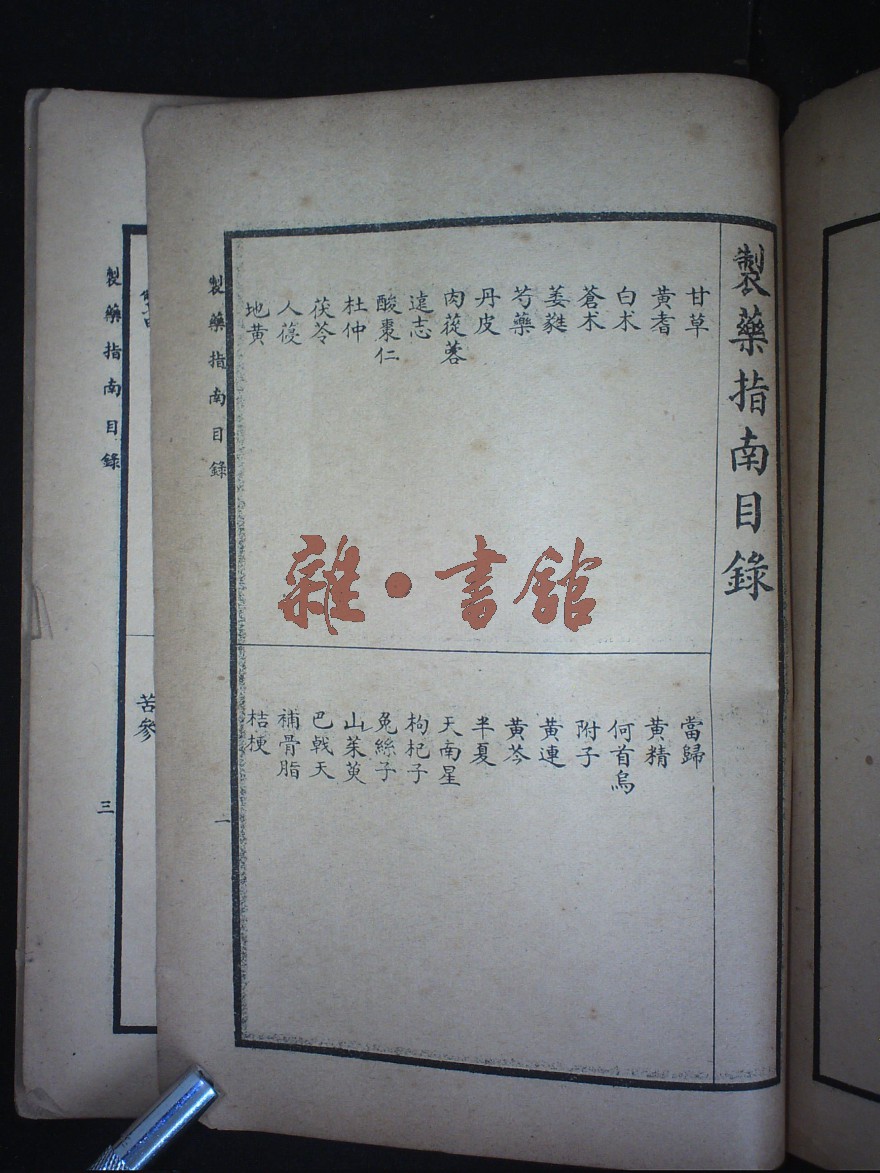 製藥指南目錄
甘草
黃耆
白朮
蒼朮
姜蕤
芍藥
丹皮
肉蓯蓉
遠志
酸棗仁
杜仲
茯苓
人葠
地黃
當歸
黃精
何首烏
附子
黃連
黃芩
半夏
天南星
枸杞子
兔絲子
山茱萸
巴戟天
補骨脂
桔梗
製藥指南目錄
一
苦參
製藥指南目錄
三
雜·書館